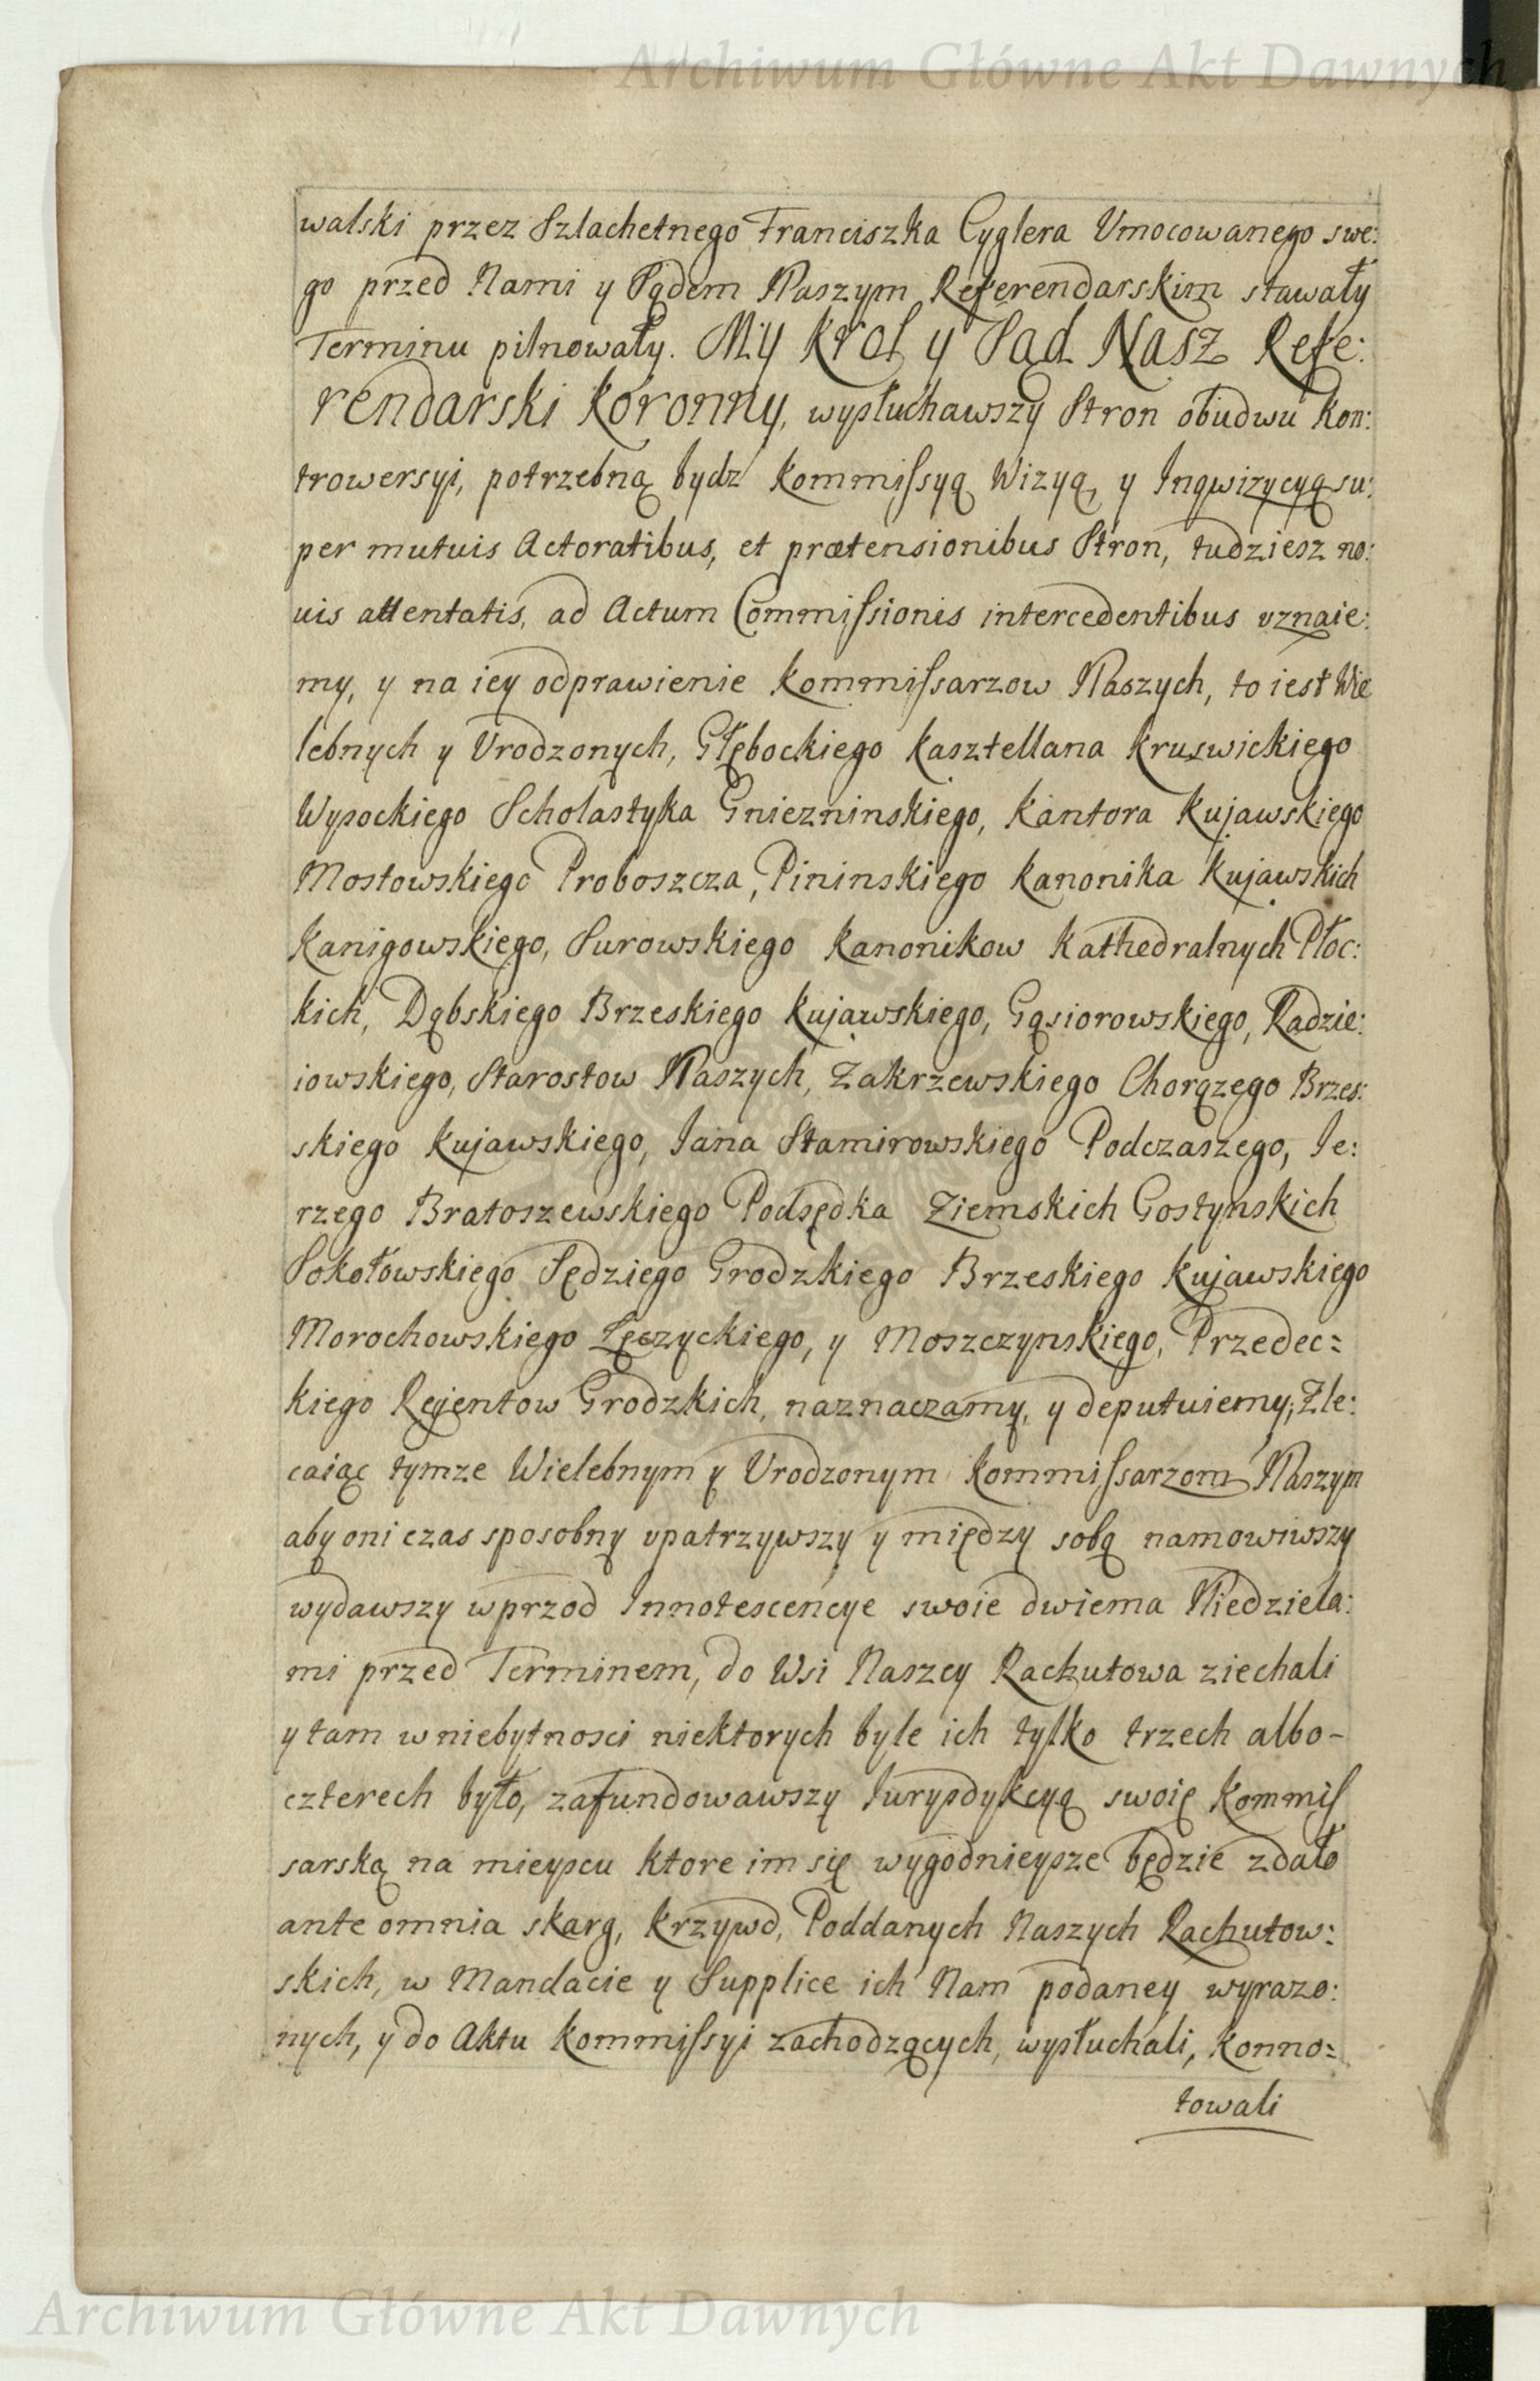 Archiwum Główne Akt Dawnych
walski przez Szlachetnego Franciszka Cyglera Vmocowanego swe:
go przed Nami y Sądem Naszym Referendarskim stawały
Terminu pilnowały. My Krol y Sąd Nasz Refe:
rendarski Koronny, wysłuchawszy Stron obudwu Kon:
trowersyi, potrzebną bydz Kommiſsyą Wizyą, y Inqwizycyą su:
per mutuis Actoratibus, et prætensionibus Stron, tudziesz no:
uis attentatis, ad Actum Commiſsionis intercedentibus vznaie:
my, y na iey odprawienie Kommiſsarzow Naszych, to iest Wie
lebnych y Vrodzonych, Głębockiego Kasztellana Kruswickiego
Wysockiego Scholastyka Gniezninskiego, Kantora Kujawskiego
Mostowskiego Proboszcza, Pininskiego Kanonika Kujawskich
Kanigowskiego, Surowskiego Kanonikow Kathedralnych Płoc:
kich, Dąbskiego Brzeskiego Kujawskiego, Gąsiorowskiego, Radzie:
iowskiego, Starostow Naszych, Zakrzewskiego Chorązego Brzes:
skiego Kujawskiego, Jana Stamirowskiego Podczaszego, Je:
rzego Bratoszewskiego Podsędka Ziemskich Gostynskich
Sokołowskiego Sędziego Grodzkiego Brzeskiego Kujawskiego
Morochowskiego Łęczyckiego, y Moszczynskiego, Przedec=
kiego Rejentow Grodzkich, naznaczamy, y deputuiemy, Zle:
caiąc tymze Wielebnym y Vrodzonym Kommiſsarzom Naszym
aby oni czas sposobny vpatrzywszy y między sobą namowiwszy
wydawszy wprzod Innotescencye swoie dwiema Niedziela:
mi przed Terminem, do Wsi Naszey Rachutowa ziechali
y tam w niebytnosci niektorych byle ich tylko trzech albo-
czterech było, zafundowawszy Jurysdykcyą swoię Kommiſ
sarską na mieyscu ktore im się wygodnieysze będzie zdało
ante omnia skarg, krzywd, Poddanych Naszych Rachutow:
skich, w Mandacie y Supplice ich Nam podaney wyrazo:
nych, y do Aktu Kommiſsyi zachodzących, wysłuchali, konno=
towali
Archiwum Główne Akt Dawnych